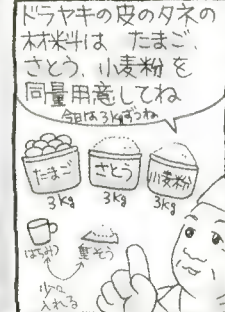 ドラヤキの皮のタネの
材料は たまご、
さとう、小麦粉を
同量用意してね
今日は3kgずつね
たまご さとう 小麦粉
3kg 3kg 3kg
はちみつ 重そう
少し
入れる